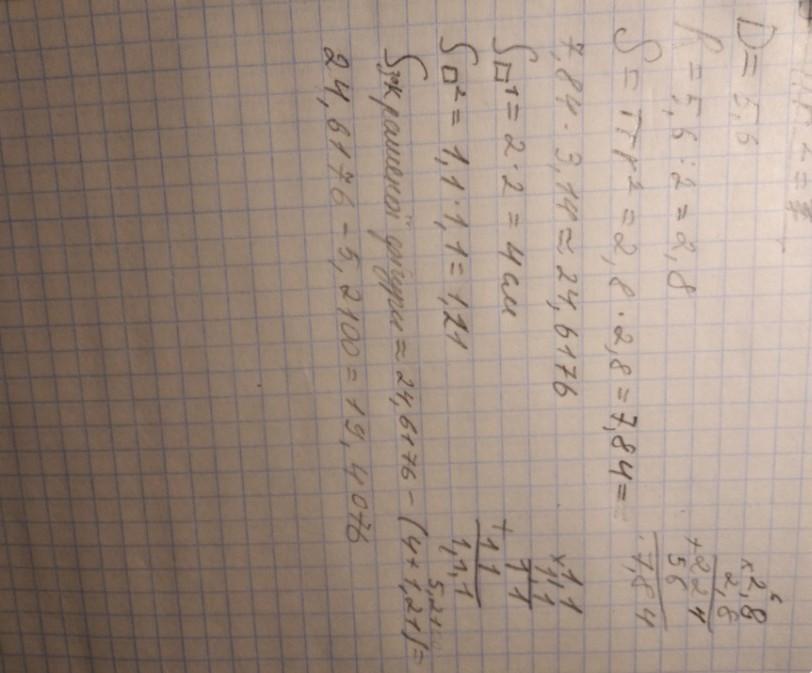 D = 5,6
R = 5,6 : 2 = 2,8
S = πr² = 2,8 · 2,8 = 7,84 =
7,84 · 3,14 ≈ 24,6176
S□¹ = 2 · 2 = 4 см
S□² = 1,1 · 1,1 = 1,21
Sзкрашеної фігури = 24,6176 - (4 + 1,21) =
24,6176 - 5,2100 = 19,4076
×2,8
2,8
+224
56
7,84
×1,1
1,1
11
+11
1,1,1